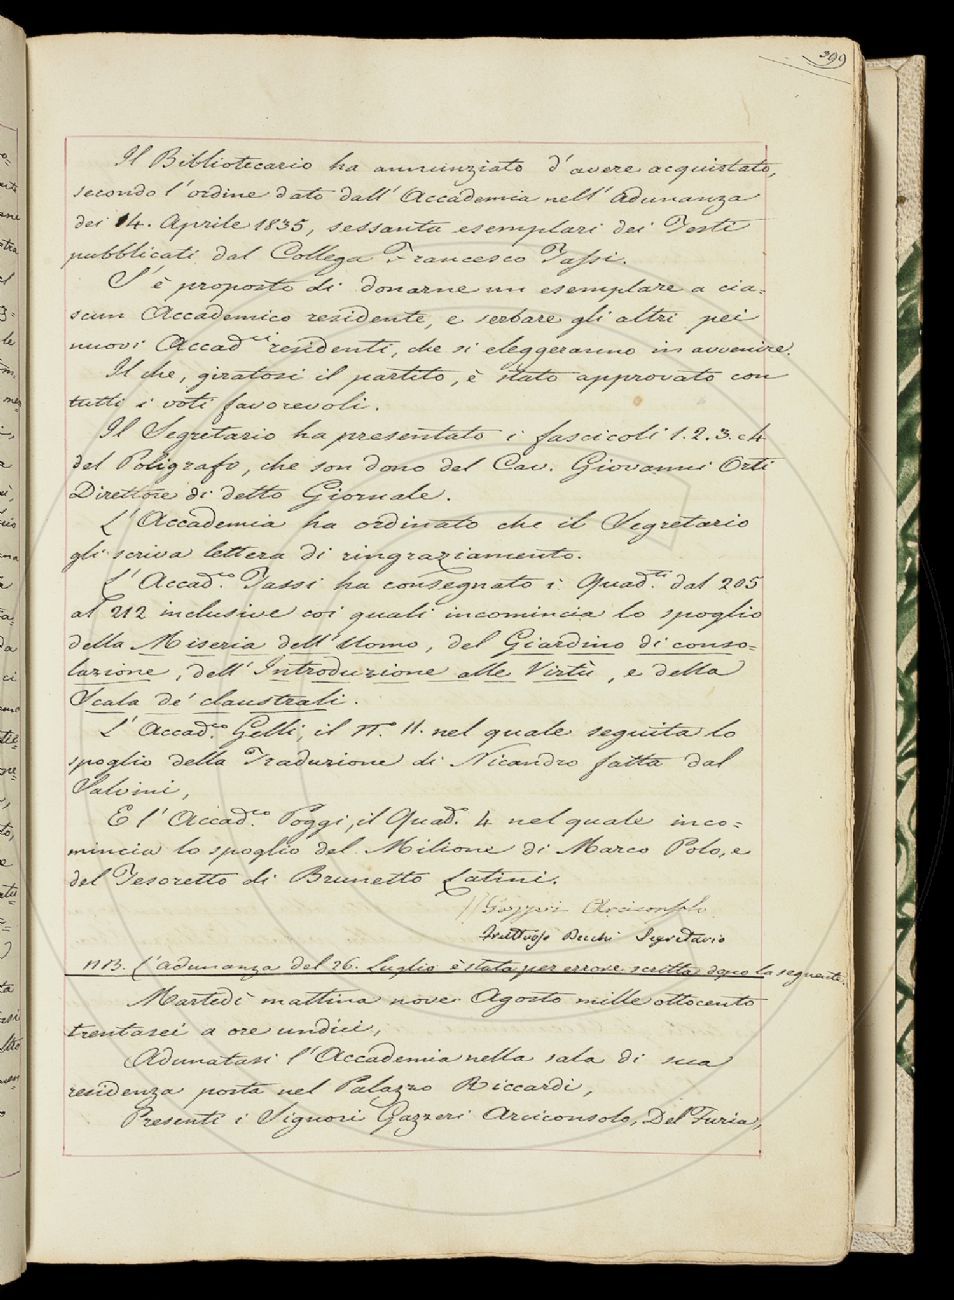 399
Il Bibliotecario ha annunziato d'avere acquistato,
secondo l'ordine dato dall'Accademia nell'Adunanza
dei 14. Aprile 1835, sessanta esemplari dei Testi
pubblicati dal Collega Francesco Tassi.
S'è proposto di donarne un esemplare a cia=
scun Accademico residente, e serbare gli altri pei
nuovi Accad.ci residenti, che si eleggeranno in avvenire.
Il che, giratosi il partito, è stato approvato con
tutti i voti favorevoli.
Il Segretario ha presentato i fascicoli 1. 2. 3. e 4
del Poligrafo, che son dono del Cav. Giovanni Orti
Direttore di detto Giornale.
L'Accademia ha ordinato che il Segretario
gli scriva lettera di ringraziamento.
L'Accad.co Tassi ha consegnato i Quad.ni dal 205
al 212 inclusive coi quali incomincia lo spoglio
della Miseria dell'Uomo, del Giardino di conso=
lazione, dell'Introduzione alle Virtù, e della
Scala de' claustrali.
L'Accad.co Gelli, il N.o 11. nel quale seguita lo
spoglio della Traduzione di Nicandro fatta dal
Salvini,
E l'Accad.co Poggi, il Quad.o 4 nel quale inco=
mincia lo spoglio del Milione di Marco Polo, e
del Tesoretto di Brunetto Latini.
Gazzeri Arciconsolo
Fruttuoso Becchi Segretario
NB. L'adunanza del 26. Luglio è stata per errore scritta dopo la seguente.
Martedì mattina nove Agosto mille ottocento
trentasei a ore undici,
Adunatasi l'Accademia nella sala di sua
residenza posta nel Palazzo Riccardi,
Presenti i Signori Gazzeri Arciconsolo, Del Furia,